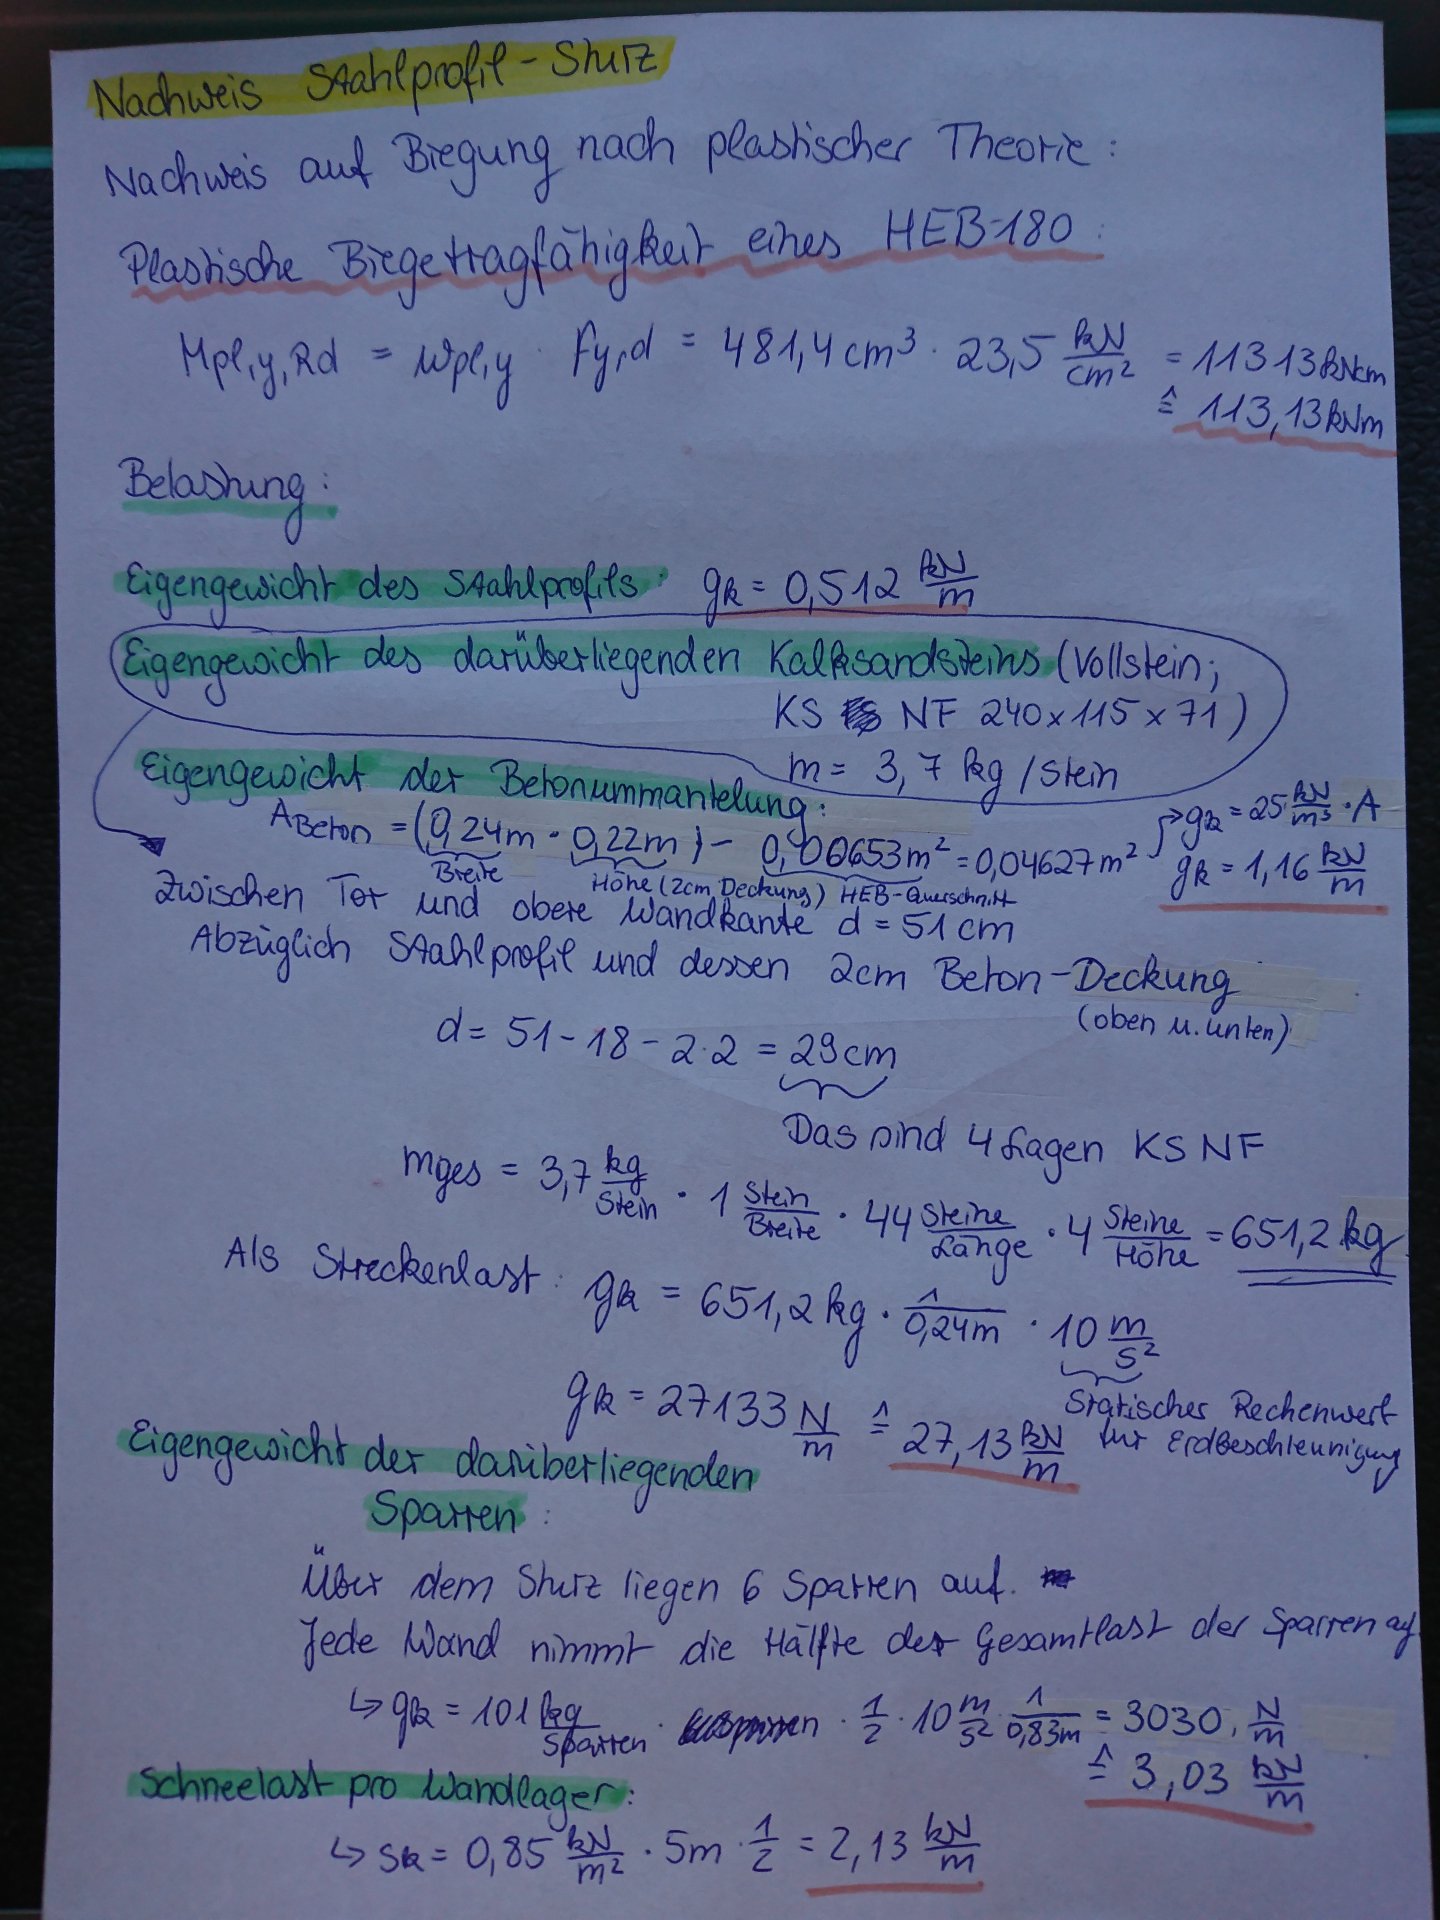 Nachweis Stahlprofil-Sturz
Nachweis auf Biegung nach plastischer Theorie:
Plastische Biegetragfähigkeit eines HEB-180:
Mpl,y,Rd = Wpl,y · Fy,d = 481,4 cm³ · 23,5 kN/cm² = 11313 kNcm
≙ 113,13 kNm
Belastung:
Eigengewicht des Stahlprofils: gk = 0,512 kN/m
Eigengewicht des darüberliegenden Kalksandsteins (Vollstein;
KS NF 240 x 115 x 71)
m = 3,7 kg/Stein
Eigengewicht der Betonummantelung:
ABeton = (0,24m · 0,22m) - 0,00653m² = 0,04627m² → gk = 25 kN/m³ · A
Breite Höhe (2cm Deckung) HEB-Querschnitt gk = 1,16 kN/m
Zwischen Tor und obere Wandkante d = 51 cm
Abzüglich Stahlprofil und dessen 2cm Beton-Deckung
(oben u. unten)
d = 51 - 18 - 2·2 = 29 cm
Das sind 4 Lagen KS NF
mges = 3,7 kg/Stein · 1 Stein/Breite · 44 Steine/Länge · 4 Steine/Höhe = 651,2 kg
Als Streckenlast: gk = 651,2 kg · 1/0,24m · 10 m/s²
gk = 27133 N/m ≙ 27,13 kN/m
Statischer Rechenwert
für Erdbeschleunigung
Eigengewicht der darüberliegenden
Sparren:
Über dem Sturz liegen 6 Sparren auf.
Jede Wand nimmt die Hälfte der Gesamtlast der Sparren auf
↳ gk = 101 kg/Sparren · · 1/2 · 10 m/s² · 1/0,83m = 3030 N/m
≙ 3,03 kN/m
Schneelast pro Wandlager:
↳ sk = 0,85 kN/m² · 5m · 1/2 = 2,13 kN/m